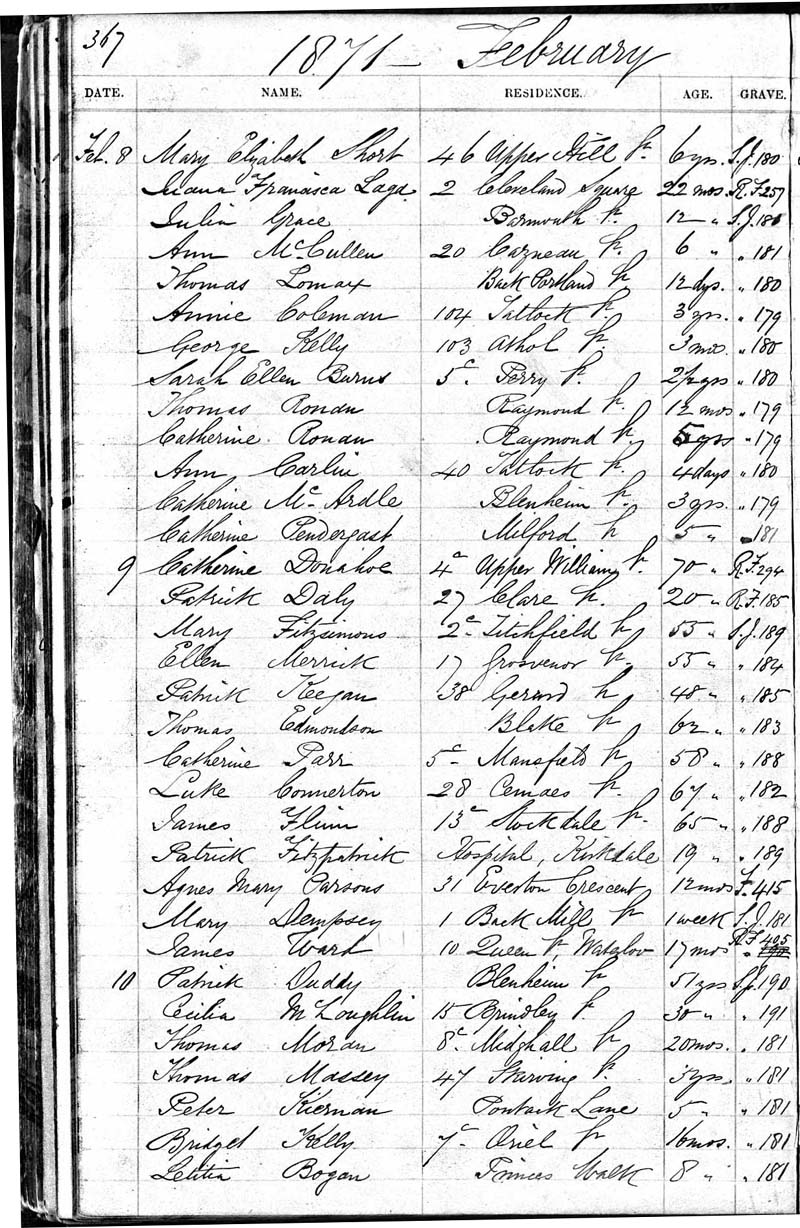 367
1871 - February
DATE. NAME. RESIDENCE. AGE. GRAVE.
Feb. 8 Mary Elizabeth Short 46 Upper Hill St. 6 yrs. S.J. 180
Francisca 2 Cleveland Square 22 mos. R.F. 257
Julia Grace Barmouth St. 12 " S.J. 180
Ann McCullen 20 Cazneau St. 6 " " 181
Thomas Lomax Back Portland St. 12 dys. " 180
Annie Coleman 104 Tatlock St. 3 yrs. " 179
George Kelly 103 Athol St. 3 mos. " 180
Sarah Ellen Burns 5 c. Perry St. 2½ yrs " 180
Thomas Ronan Raymond St. mos " 179
Catherine Ronan Raymond St. 5 yrs " 179
Ann Carlin 40 Tatlock St. 4 days " 180
Catherine McArdle Blenheim St. 3 yrs. " 179
Catherine Pendergast Milford St 5 " " 181
9 Catherine Donahoe 4 c Upper William St. 70 " R.F. 294
Patrick Daly 27 Clare St. 20 " R.F. 185
Mary Fitzsimons 2 c. Titchfield St 55 " S.J. 189
Ellen Merrick 17 Grosvenor St. 55 " " 184
Patrick Keegan 38 Gerard St 48 " " 185
Thomas Edmondson Blake St 62 " " 183
Catherine Parr 5 c. Mansfield St 58 " " 188
Luke Connerton 28 Cemaes St. 67 " " 182
James Flinn 13 c Stockdale St. 65 " " 188
Patrick Fitzpatrick Hospital, Kirkdale 19 " " 189
Agnes Mary Parsons 31 Everton Crescent 12 mos F. 415
Mary Dempsey 1 Back Mill St 1 week S.J. 181
James Ward 10 Queen St, Waterloo 17 mos R.F. 405
10 Patrick Duddy Blenheim St 51 yrs S.J. 190
Cecilia McLoughlin 15 Brindley St 30 " " 191
Thomas Moran 8 c. Midghall St 20 mos. " 181
Thomas Massey 47 Skirving St. 3 yrs. " 181
Peter Kiernan Pontack Lane 5 " " 181
Bridget Kelly 7 c. Oriel St 16 mos. " 181
Letitia Bogan Princes Walk 8 " " 181